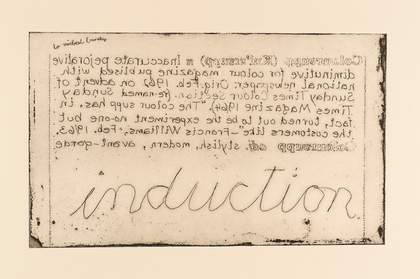 Coloursupp (Kul'ərsupp) n Inaccurate pejorative
diminutive for colour magazine publised with
national newspaper. Orig. Feb. 1962 on advent of
Sunday Times Colour Section. (renamed Sunday
Times Magazine 1964). "The colour supp has. in
fact, turned out to be the experiment no-one but
the customers like"-Francis Williams. Feb. 1963.
Coloursupp of stylish, modern, avant-garde
induction